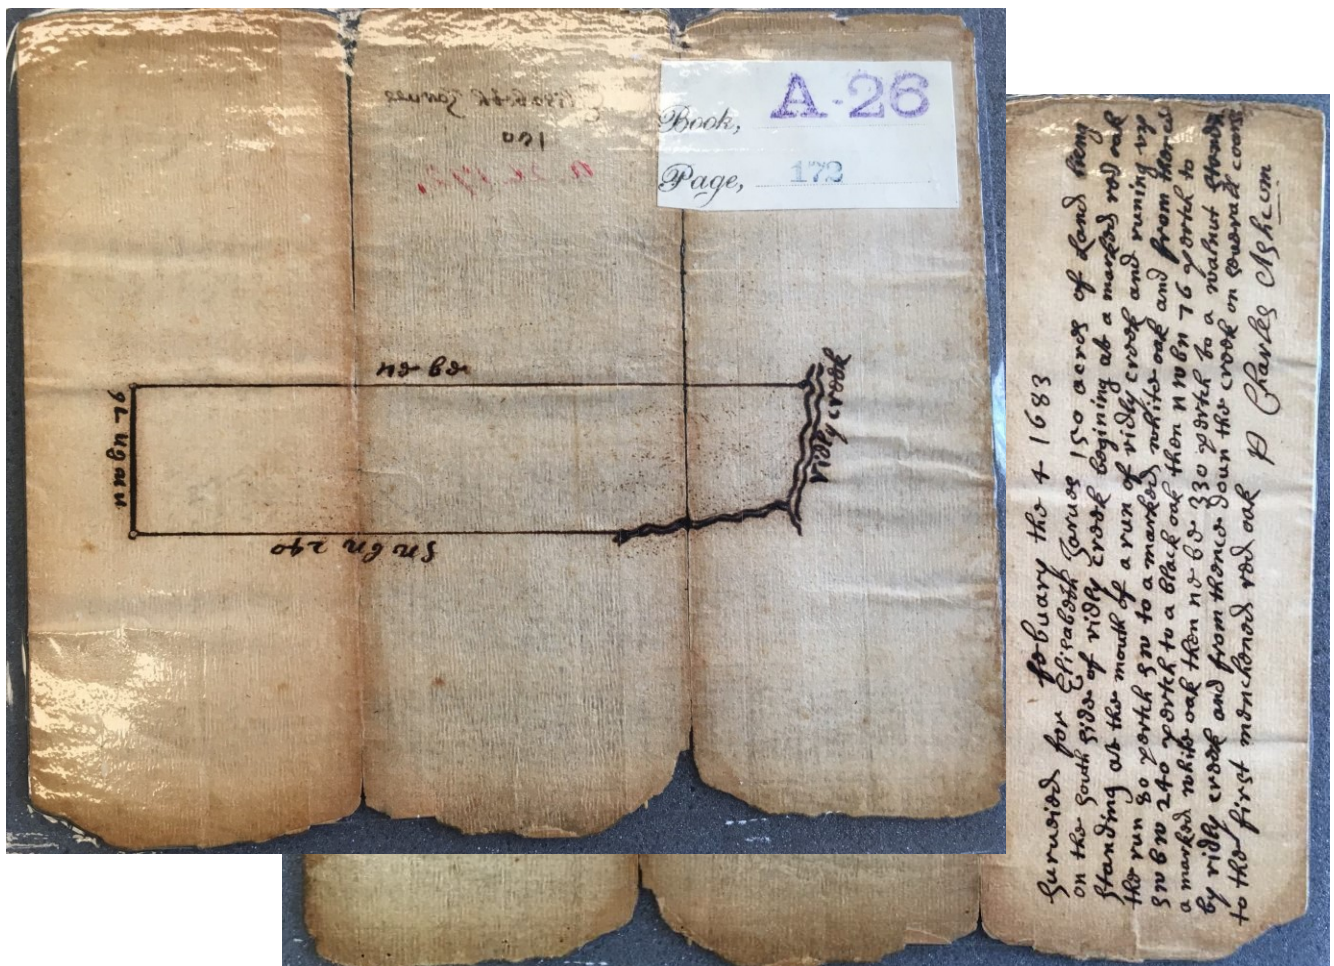 Book, A-26
Page, 172
Elisabeth Jarues
ne be
ridly creek
swbw 240
febuary the 4 1683
Suruaied for Elisabeth Jarues 150 acres of Land lieng
on the South Side of ridly creek begining at a marked red oak
standing at the mouth of a run of ridly creek and runing vp
the run 80 pertch sw to a marked white oak and from thence
swbw 240 pertch to a black oak then nwbn 76 pertch to
a marked white oak then ne be 330 pertch to a walnut standing
by ridly creek and from thence doun the creek on seuerall courses
to the first menchened red oak
P Charles Ashcom